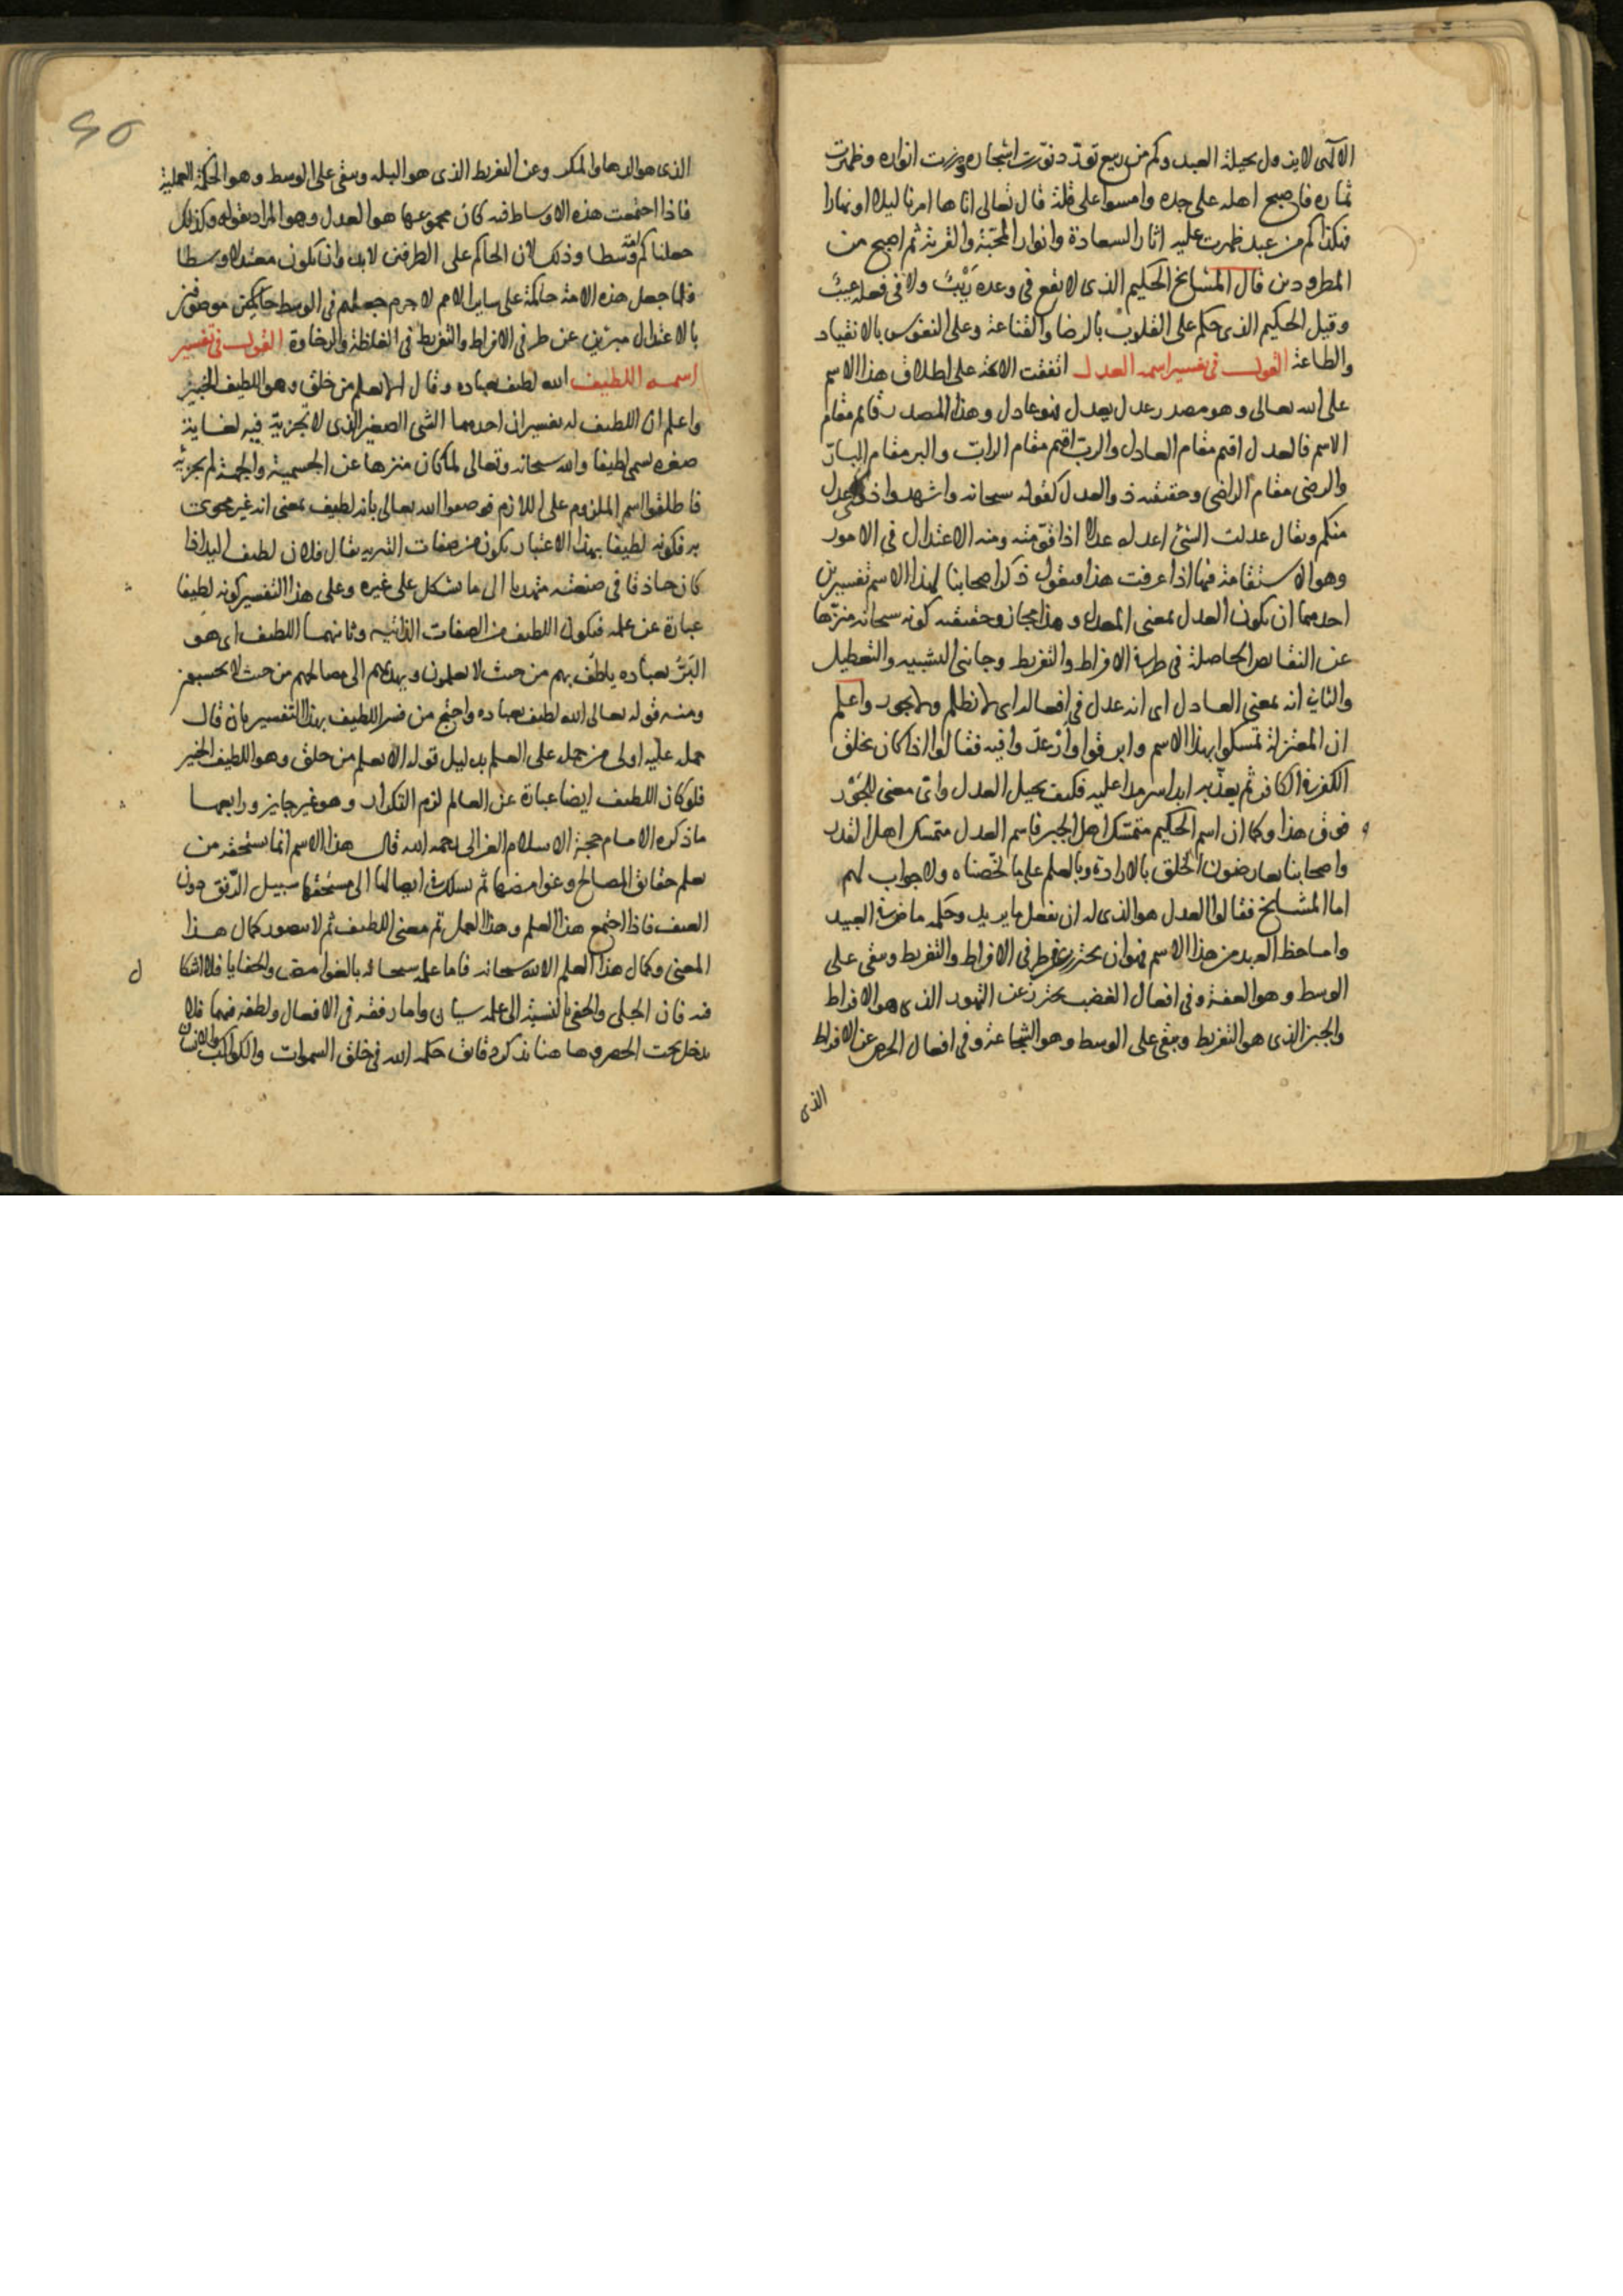 الالهى لا يزول بحيلة العبد وكم من ربيع تورد نورت اشجاره وزهرت انواره وظهرت
ثماره فاصبح اهله على جده وامسوا على قلة قال تعالى اتاها امرنا ليلا او نهارا
فكذا كم من عبد ظهرت عليه اثار السعادة وانوار المحبة والقربة ثم اصبح من
المطرودين قال المشايخ الحكيم الذى لا يقع فى وعده ريب ولا فى فعله عيب
وقيل الحكيم الذى حكم على القلوب بالرضا والقناعة وعلى النفوس بالانقياد
والطاعة القول فى تفسير اسمه العدل اتفقت الائمة على اطلاق هذا الاسم
على الله تعالى وهو مصدر عدل يعدل فهو عادل وهذا المصدر قائم مقام
الاسم فالعدل اقيم مقام العادل والرب اقيم مقام الراب والبر مقام البار
والرضى مقام الراضى وحقيقته ذو العدل كقوله سبحانه واشهدوا ذوى عدل
منكم ويقال عدلت الشئ اعدله عدلا اذا قومته ومنه الاعتدال فى الامور
وهو الاستقامة فيها اذا عرفت هذا فنقول ذكر اصحابنا لهذا الاسم تفسيرين
احدهما ان يكون العدل بمعنى المعدل وهذا مجاز وحقيقته كونه سبحانه منزها
عن النقايص الحاصلة فى طرفى الافراط والتفريط وجانبى التشبيه والتعطيل
والثانى انه بمعنى العادل اى انه عدل فى افعاله اى لا يظلم ولا يجور واعلم
ان المعتزلة تمسكوا بهذا الاسم وابرقوا وارعدوا فيه فقالوا اذا كان يخلق
الكفر فى الكافر ثم يعذبه ابدا سرمدا عليه فكيف يحصل العدل واى معنى للجور
فوق هذا وكما ان اسم الحكيم متمسك اهل الجبر فاسم العدل متمسك اهل القدر
واصحابنا يعارضون الخلق بالارادة وبالعلم على ما لخصناه ولا جواب لهم
اما المشايخ فقالوا العدل هو الذى له ان يفعل ما يريد وحكمه ماض فى العبيد
واما حظ العبد من هذا الاسم فهو ان يحترز عن طرفى الافراط والتفريط ويبقى على
الوسط وهو العفة وفى افعال الغضب يحترز عن التهور الذى هو الافراط
والجبن الذى هو التفريط ويبقى على الوسط وهو الشجاعة وفى افعال الحرص عن الافراط
الذى
الذى هو الدها والمكر وعن التفريط الذى هو البله ويبقى على الوسط وهو الحكمة العملية
فاذا اجتمعت هذه الاوساط فيه كان مجموعها هو العدل وهو المراد بقوله وكذلك
جعلناكم امة وسطا وذلك لان الحاكم على الطرفين لابد وان يكون معتدلا وسطا
فلما جعل هذه الامة حاكمة على ساير الامم لا جرم جعلهم فى الوسط حاكمين موصوفين
بالاعتدال مبرئين عن طرفى الافراط والتفريط فى الغلظة والرخاوة القول فى تفسير
اسمه اللطيف الله لطيف بعباده وقال الا يعلم من خلق وهو اللطيف الخبير
واعلم ان اللطيف له تفسيران احدهما الشى الصغير الذى لا تجزية فيه لغاية
صغره يسمى لطيفا والله سبحانه وتعالى لما كان منزها عن الجسمية والجهة لم يجزئه
فاطلقوا اسم الملزوم على اللازم فوصفوا الله تعالى بانه لطيف بمعنى انه غير محوى
به فكونه لطيفا بهذا الاعتبار يكون من صفات التنزيه يقال فلان لطيف اليد اذا
كان حاذقا فى صنعته مهتديا الى ما يشكل على غيره وعلى هذا التفسير كونه لطيفا
عبارة عن علمه فيكون اللطيف من الصفات الذاتيه وثانيهما اللطيف اى هو
البر بعباده يلطف بهم من حيث لا يعلمون ويهديهم الى مصالحهم من حيث لا يحتسبون
ومنه قوله تعالى الله لطيف بعباده واحتج من فسر اللطيف بهذا التفسير بان قال
حمله عليه اولى من حمله على العلم بدليل قوله الا يعلم من خلق وهو اللطيف الخبير
فلو كان اللطيف ايضا عبارة عن العالم لزم التكرار وهو غير جايز ورابعها
ما ذكره الامام حجة الاسلام الغزالى رحمه الله قال هذا الاسم انما يستحقه من
يعلم حقائق المصالح وغوامضها ثم يسلك فى ايصالها الى مستحقها سبيل الرفق دون
العنف فاذا اجتمع هذا العلم وهذا العمل تم معنى اللطيف ثم لا يتصور كمال هذا
المعنى وكمال هذا العلم الا لله سبحانه فاما علمه سبحانه بالغوامض والخفايا فلا اشكا
ل
فيه فان الجلى والخفى بالنسبة الى علمه سيان واما رفقه فى الافعال ولطفه فيها فلا
يدخل تحت الحصر وها هنا نذكر دقائق حكمة الله فى خلق السموات والكواكب والانسان